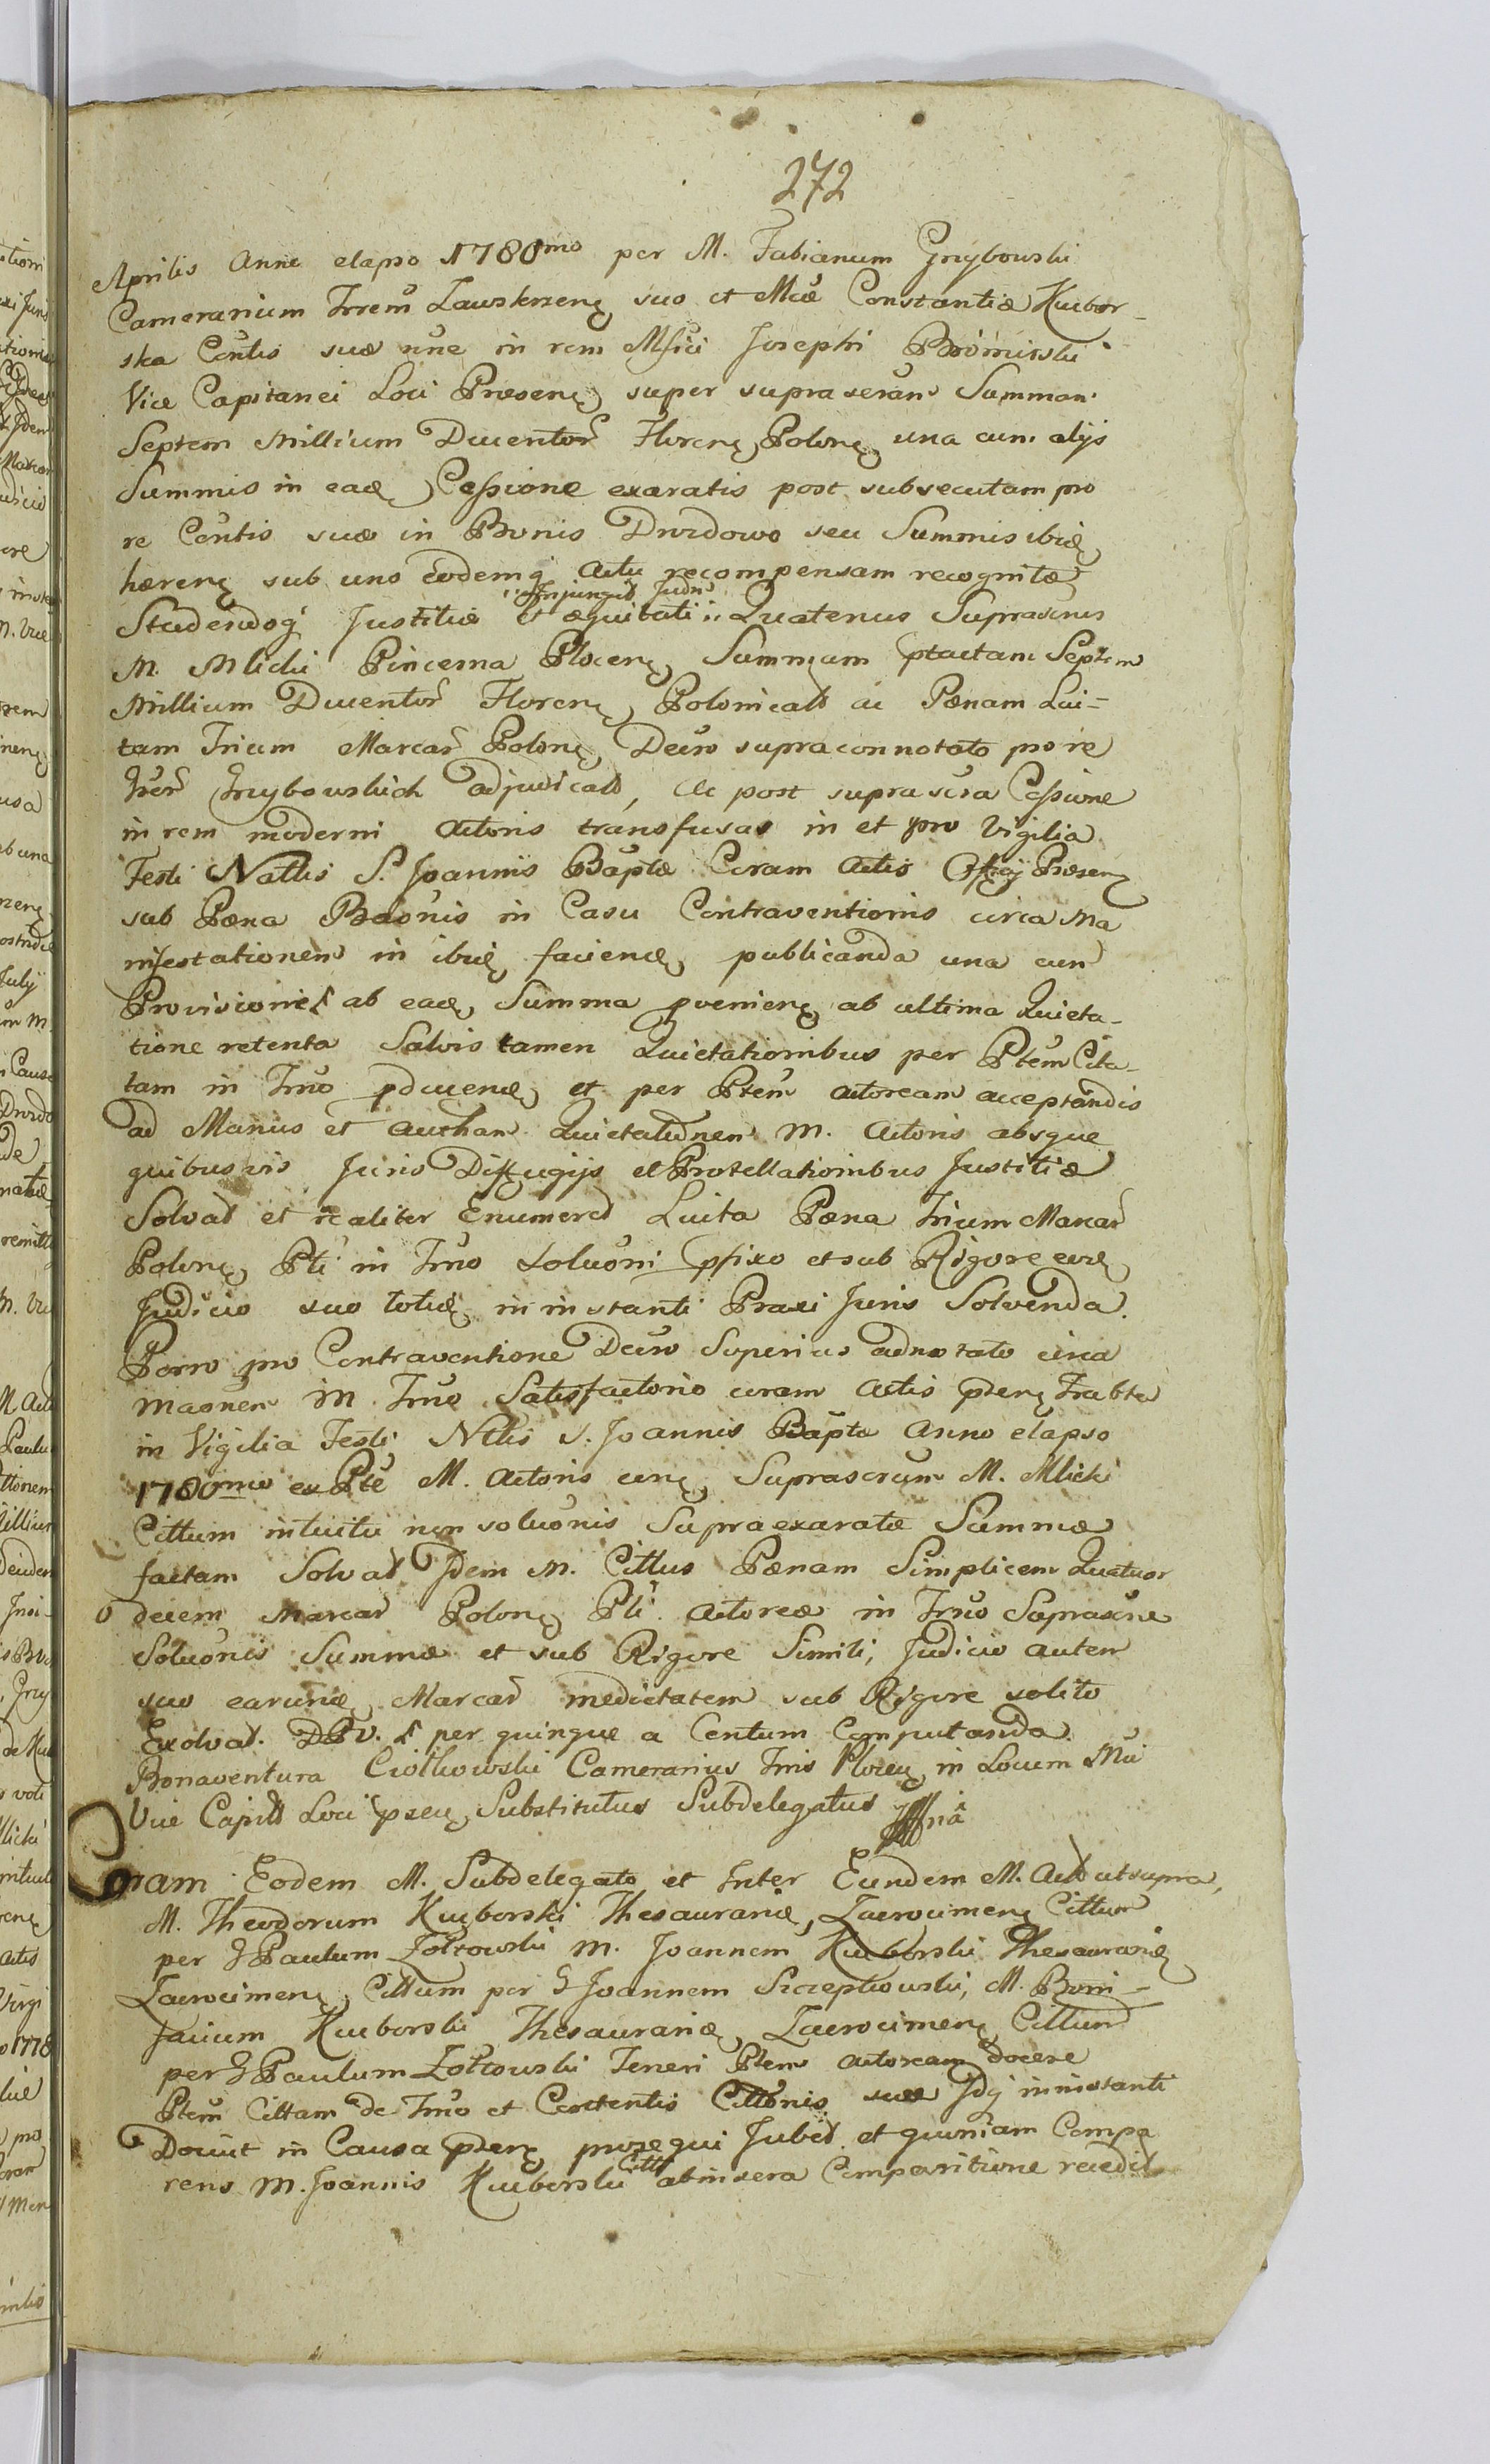 272
Aprilis Anno elapso 1780mo per M. Fabianum Grzybowski
Camerarium Trrem Zawskrzeng suo et Mcæ Constantiæ Kucbor-
ska Contis suæ nne in rem Mfici Josephi Bromirski
Vice Capitanei Loci Præseng super suprascran Summam
Septem Millium Ducentor Floreng Polong una cum alijs
Summis in eade Cessione exaratis post subsecutam pro
re Contis suæ in Bonis Drozdowo seu Summis ibid
hæreng sub uno eodemq actu recompensam recognita
Studendoq Justitiæ et æquitati Injungit Judm Quatenus Suprascrus
M. Mlicki Pincerna Ploceng Summam ptactam Septem
Millium Ducentor Floreng Polonicalt ac Pænam Lui-
tam Trium Marcar Polong Decro supraconnotato pro re
Grzybowskich adjudicatt, Ac post suprascra Cessione
in rem moderni Actoris transfusas in et pro Vigilia
Festi Nattis S. Joannis Baptæ Coram Actis Officij Præseng
sub Pæna Bannis in Casu Contraventionis circa Ma
nifestationem in ibid faciend publicanda una cum
Provisione ab eade Summa pvenieng ab ultima Quieta-
tione retenta Salvis tamen Quietationibus per Ptem Cita-
tam in Trno pducend et per Ptem actoream acceptandis
ad Manus et authan Quietationem M. Actoris absque
quibusvis Juris Diffugijs et Protellationibus Justitiæ
Solvat et realiter Enumeret Luita Pæna trium Marcar
Polong Pti in Trno Soluoni pfixo et sub Rigore eod
Judicio suo totid in instanti Praxi Juris Solvenda.
Porro pro Contraventione Decro Superius adnotato circa
Maonem in Trno Satisfactorio coram Actis pseng
in Vigilia Festi Nttis S. Joannis Baptæ Anno elapso
1780mo ex Pte M. Actoris cong Suprascrum M. Mlicki
Cittum intuitu non soluonis Supraexaratæ Summæ
factam Solvat Idem M. Cittus Pænam Simplicem Quatuor
decem Marcar Polong Pti Actoreæ in Trno Suprascræ
Soluonis Summæ et sub Rigore Simili, Judicio autem
suo earund Marcar medietatem sub Rigore solito
Exolvat. per quinque a Centum Computanda.
Bonaventura Ciolkowski Camerarius Trris Ploceng in Locum Mci
Vice Capitt Loci pseng Substitutus Subdelegatus
Coram Eodem M. Subdelegato et Inter Eundem M. Act ut supra,
M. Theodorum Kucborski Thesaurarid Zacrocimeng Cittum
per G Paulum Zołtowski M. Joannem Kucborski Thesaurarid
Zacrocimeng Cittum per G Joannem Szczepkowski, M. Boni-
facium Kucborski Thesaurarid Zacrocimeng Cittum
per G Paulum Zołtowski Teneri Ptem actoream docere
Ptem Cittam de Trno et Contentis Cittonis suæ Idq in instanti
Docuit in Causa pseng prosequi Jubet et quoniam Compa
rens M. Joannis Kucborski Citti ab insera Comparitione recedit